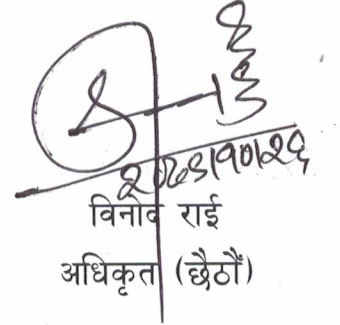 २०७९।१०।२६
विनोद राई
अधिकृत (छैठौं)